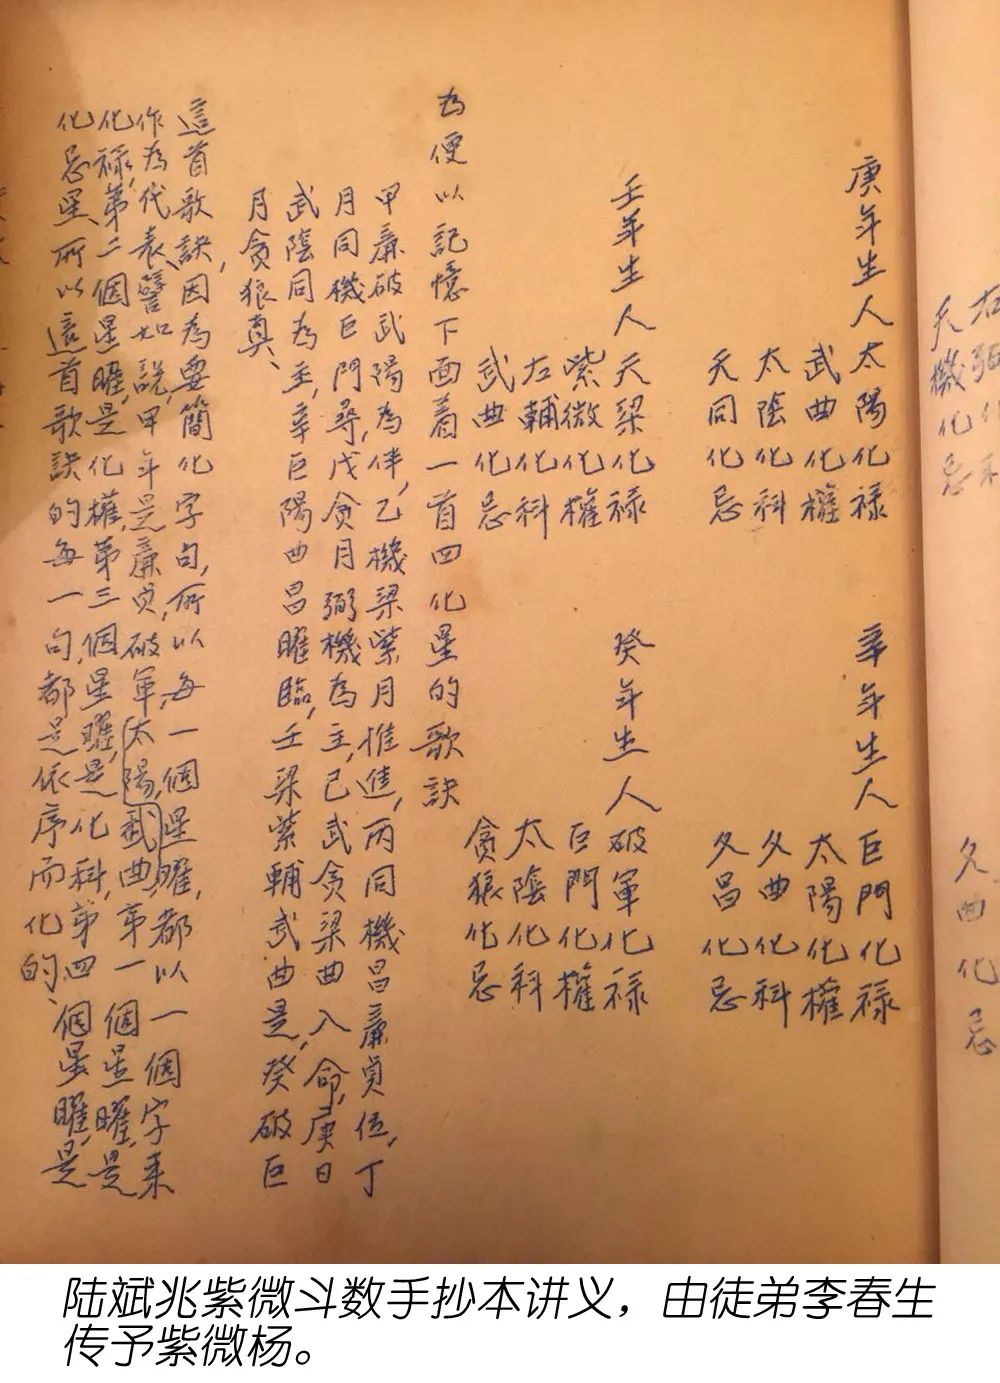 右弼化科
天機化忌
文曲化忌
庚年生人 太陽化禄
武曲化權
太陰化科
天同化忌
辛年生人 巨門化禄
太陽化權
文曲化科
文昌化忌
壬年生人 天梁化禄
紫微化權
左輔化科
武曲化忌
癸年生人 破軍化禄
巨門化權
太陰化科
貪狼化忌
為便以記憶下面着一首四化星的歌訣
甲廉破武陽為伴,乙機梁紫月推進,丙同機昌廉貞位,丁
月同機巨門尋,戊貪月弼機為主,己武貪梁曲入命,庚日
武陰同為主,辛巨陽曲昌曜臨,壬梁紫輔武曲是,癸破巨
月貪狼真、
這首歌訣,因為要簡化字句,所以每一個星曜,都以一個字來
作為代表、譬如說,甲年是廉貞,破軍,太陽,武曲,第一個星曜,是
化禄,第二個星曜,是化權,第三個星曜,是化科,第四個星曜,是
化忌星、所以這首歌訣的每一句,都是依序而化的、
陆斌兆紫微斗数手抄本讲义，由徒弟李春生
传予紫微杨。